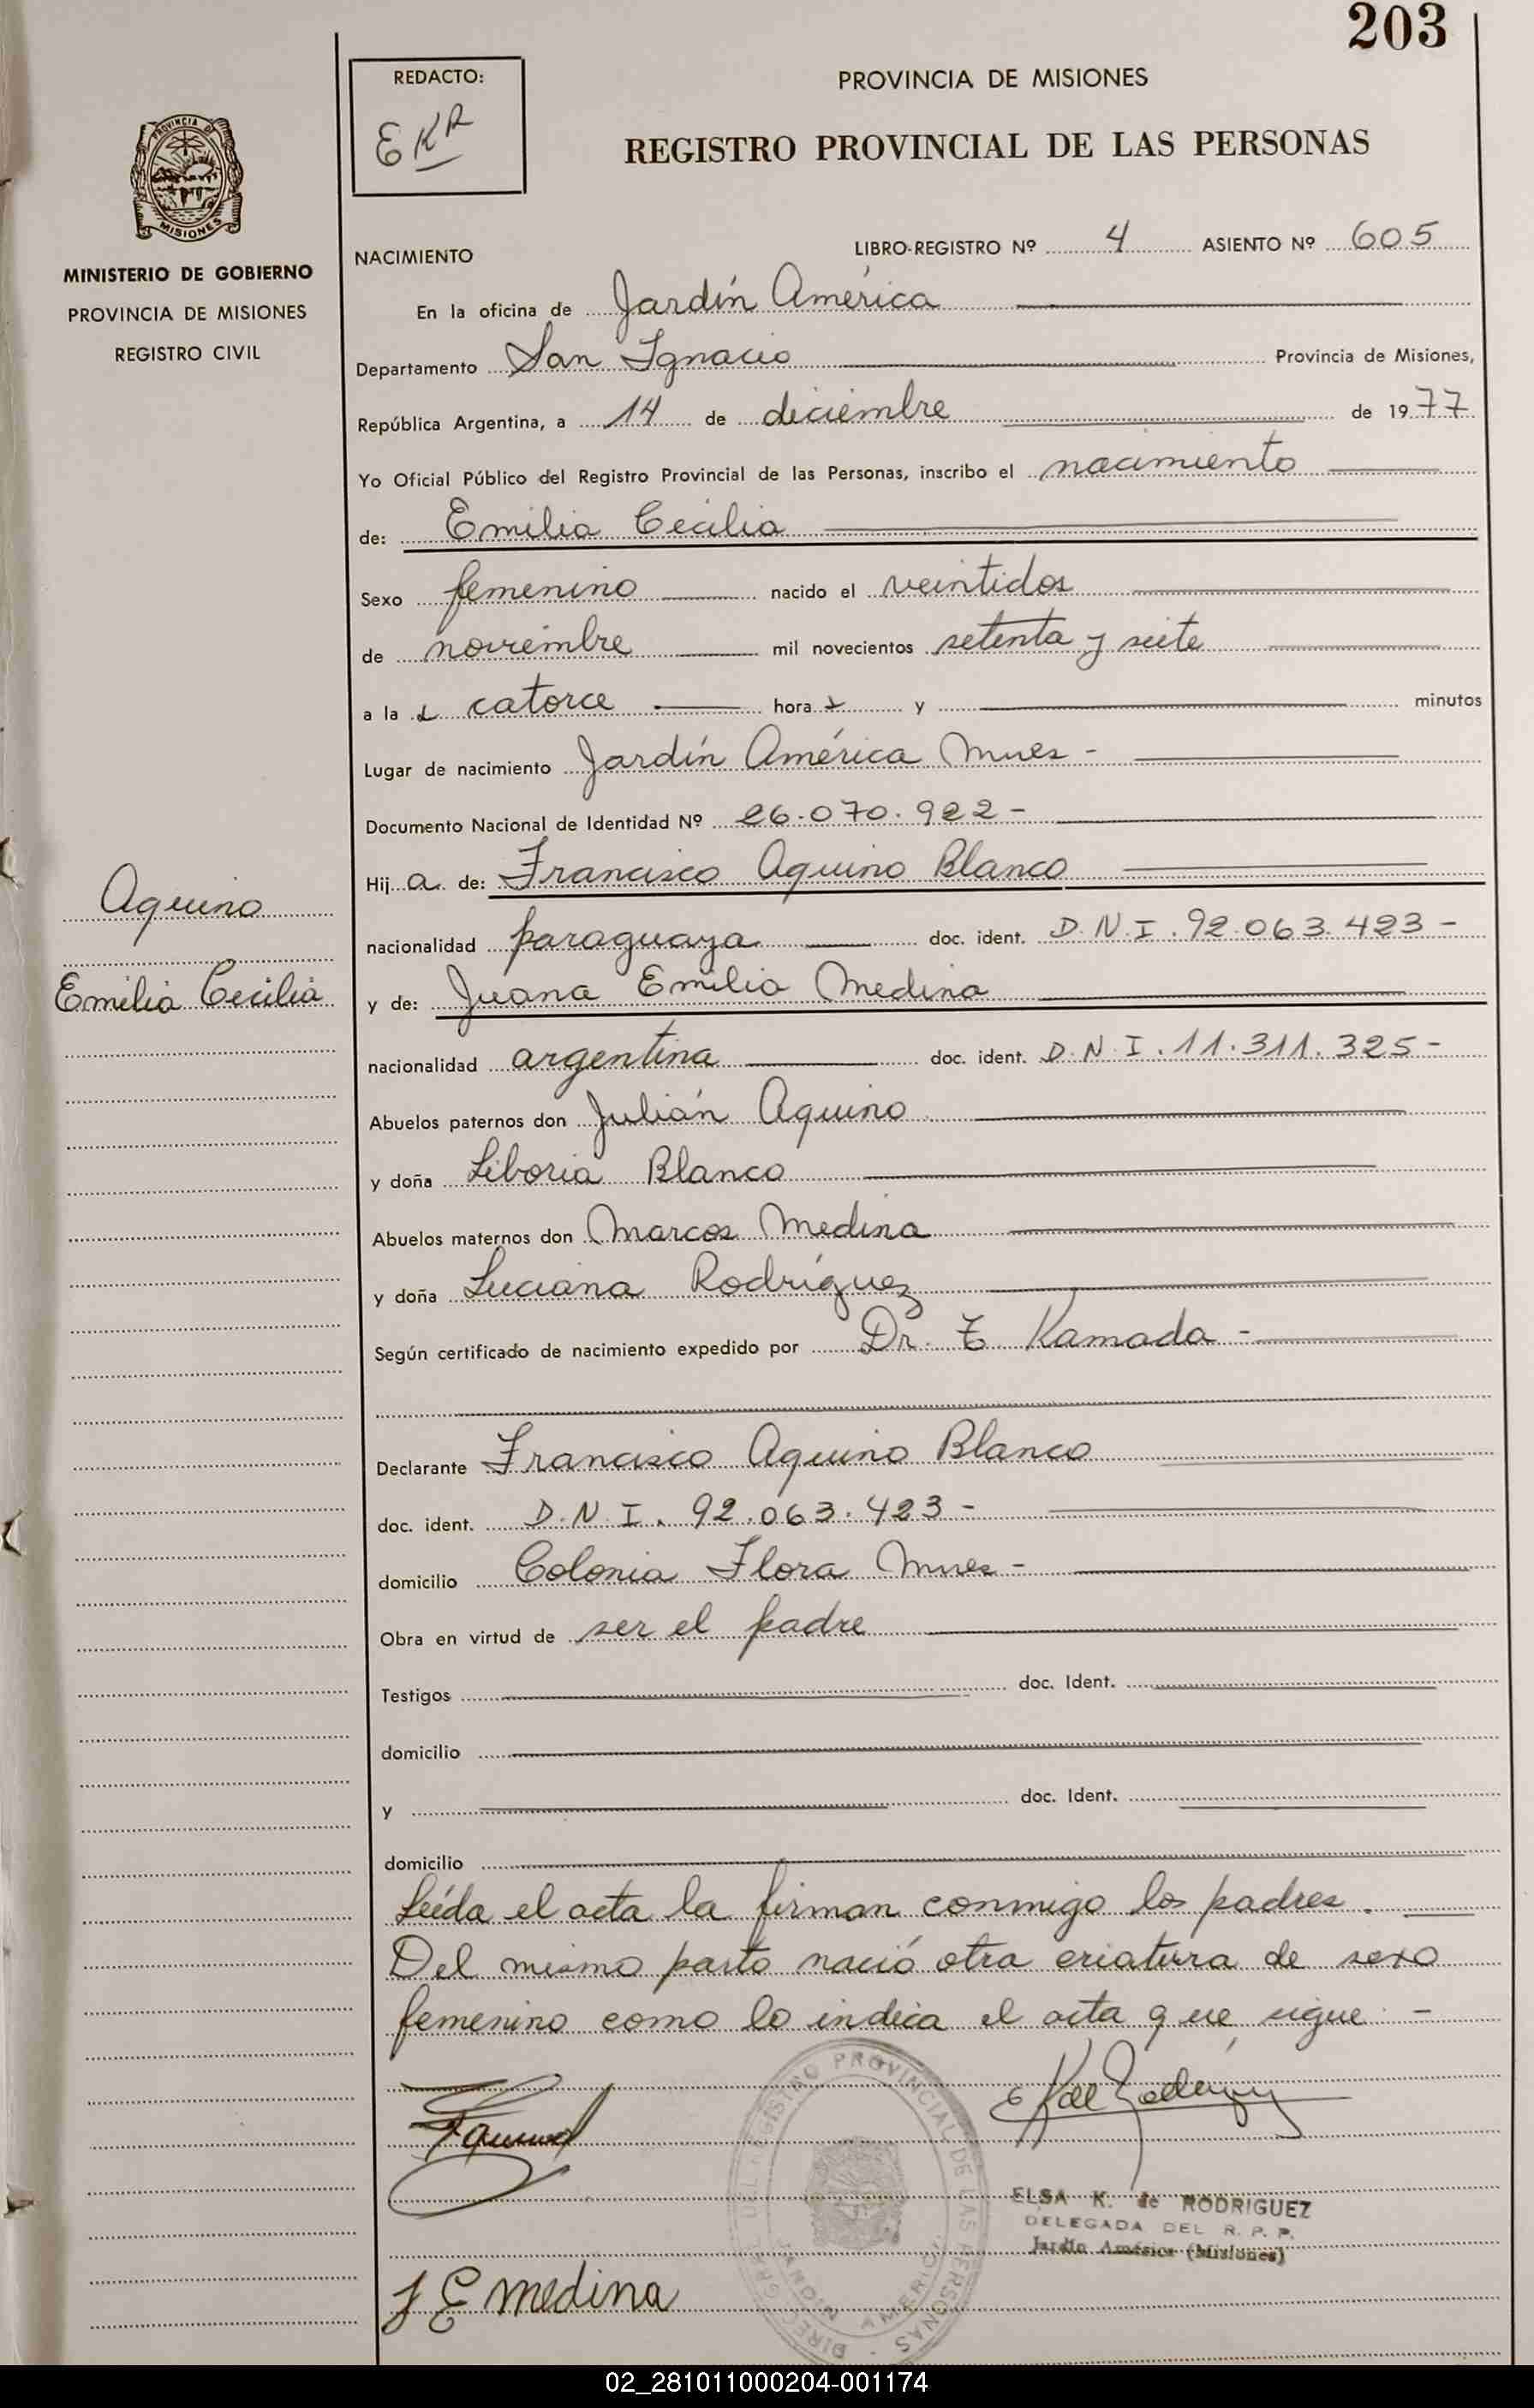 203
REDACTO:
EKR
PROVINCIA DE MISIONES
REGISTRO PROVINCIAL DE LAS PERSONAS
PROVINCIA DE
MISIONES
MINISTERIO DE GOBIERNO
PROVINCIA DE MISIONES
REGISTRO CIVIL
NACIMIENTO
LIBRO-REGISTRO Nº 4 ASIENTO Nº 605
En la oficina de Jardín América
Departamento San Ignacio Provincia de Misiones,
República Argentina, a 14 de diciembre de 1977
Yo Oficial Público del Registro Provincial de las Personas, inscribo el nacimiento
de: Emilia Cecilia
Sexo femenino nacido el veintidos
de noviembre mil novecientos setenta y siete
a la s catorce hora s y minutos
Lugar de nacimiento Jardín América Mnes -
Documento Nacional de Identidad Nº 26.070.922-
Hij a de: Francisco Aquino Blanco
Aquino
nacionalidad paraguaya doc. ident. D.N.I. 92.063.423-
Emilia Cecilia
y de: Juana Emilia Medina
nacionalidad argentina doc. ident. D.N.I. 11.311.325-
Abuelos paternos don Julián Aquino
y doña Liboria Blanco
Abuelos maternos don Marcos Medina
y doña Luciana Rodríguez
Según certificado de nacimiento expedido por Dr. T Kamada -
Declarante Francisco Aquino Blanco
doc. ident. D.N.I. 92.063.423-
domicilio Colonia Flora Mnes -
Obra en virtud de ser el padre
Testigos doc. Ident.
domicilio
y doc. Ident.
domicilio
Leída el acta la firman conmigo los padres.
Del mismo parto nació otra criatura de sexo
femenino como lo indica el acta que sigue. -
E K de Rodríguez
ELSA K. de RODRIGUEZ
DELEGADA DEL R. P. P.
Jardín América (Misiones)
DIREC. GRAL. DEL REGISTRO PROVINCIAL DE LAS PERSONAS
JARDIN AMERICA
J E Medina
02_281011000204-001174